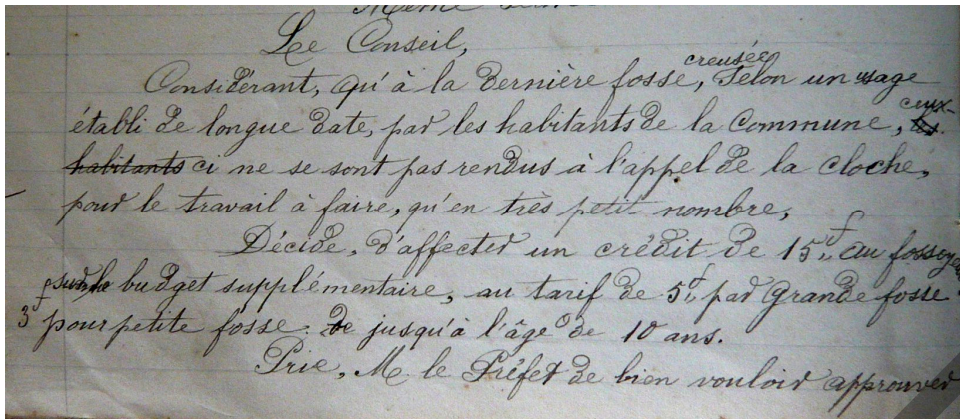 Même
Le Conseil,
Considérant, qu'à la dernière fosse, creusée, Selon un usage
établi de longue date, par les habitants de la Commune, ceux-
habitants ci ne se sont pas rendus à l'appel de la cloche,
pour le travail à faire, qu'en très petit nombre,
Décide, d'affecter un crédit de 15f,, au fossoyeur
sur le budget supplémentaire, au tarif de 5f,, par Grande fosse
3f pour petite fosse. de jusqu'à l'âge de 10 ans.
Prie, M. le Préfet de bien vouloir approuver